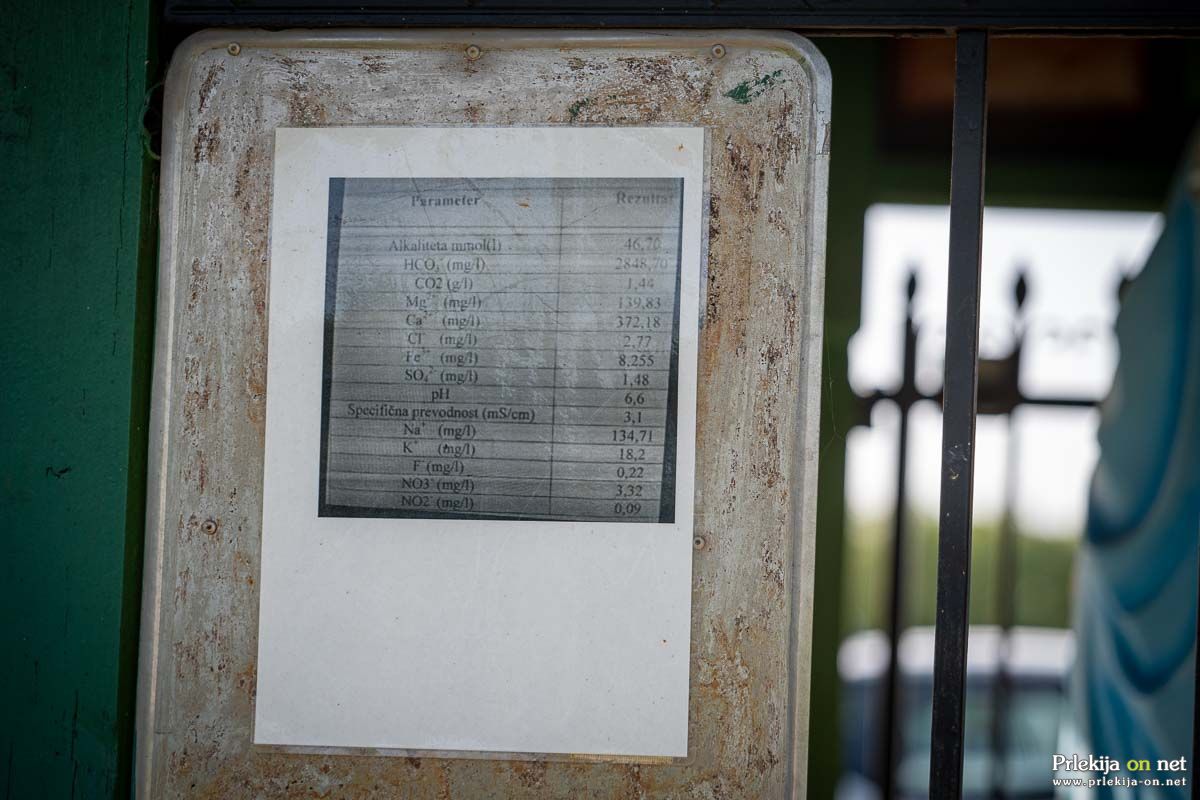 Parameter Rezultat
Alkaliteta mmol(l) 46,70
HCO₃⁻ (mg/l) 2848,70
CO2 (g/l) 1,44
Mg²⁺ (mg/l) 139,83
Ca²⁺ (mg/l) 372,18
Cl⁻ (mg/l) 2,77
Fe²⁺ (mg/l) 8,255
SO₄²⁻ (mg/l) 1,48
pH 6,6
Specifična prevodnost (mS/cm) 3,1
Na⁺ (mg/l) 134,71
K⁺ (mg/l) 18,2
F⁻ (mg/l) 0,22
NO3⁻ (mg/l) 3,32
NO2⁻ (mg/l) 0,09
Prlekija on net
www.prlekija-on.net